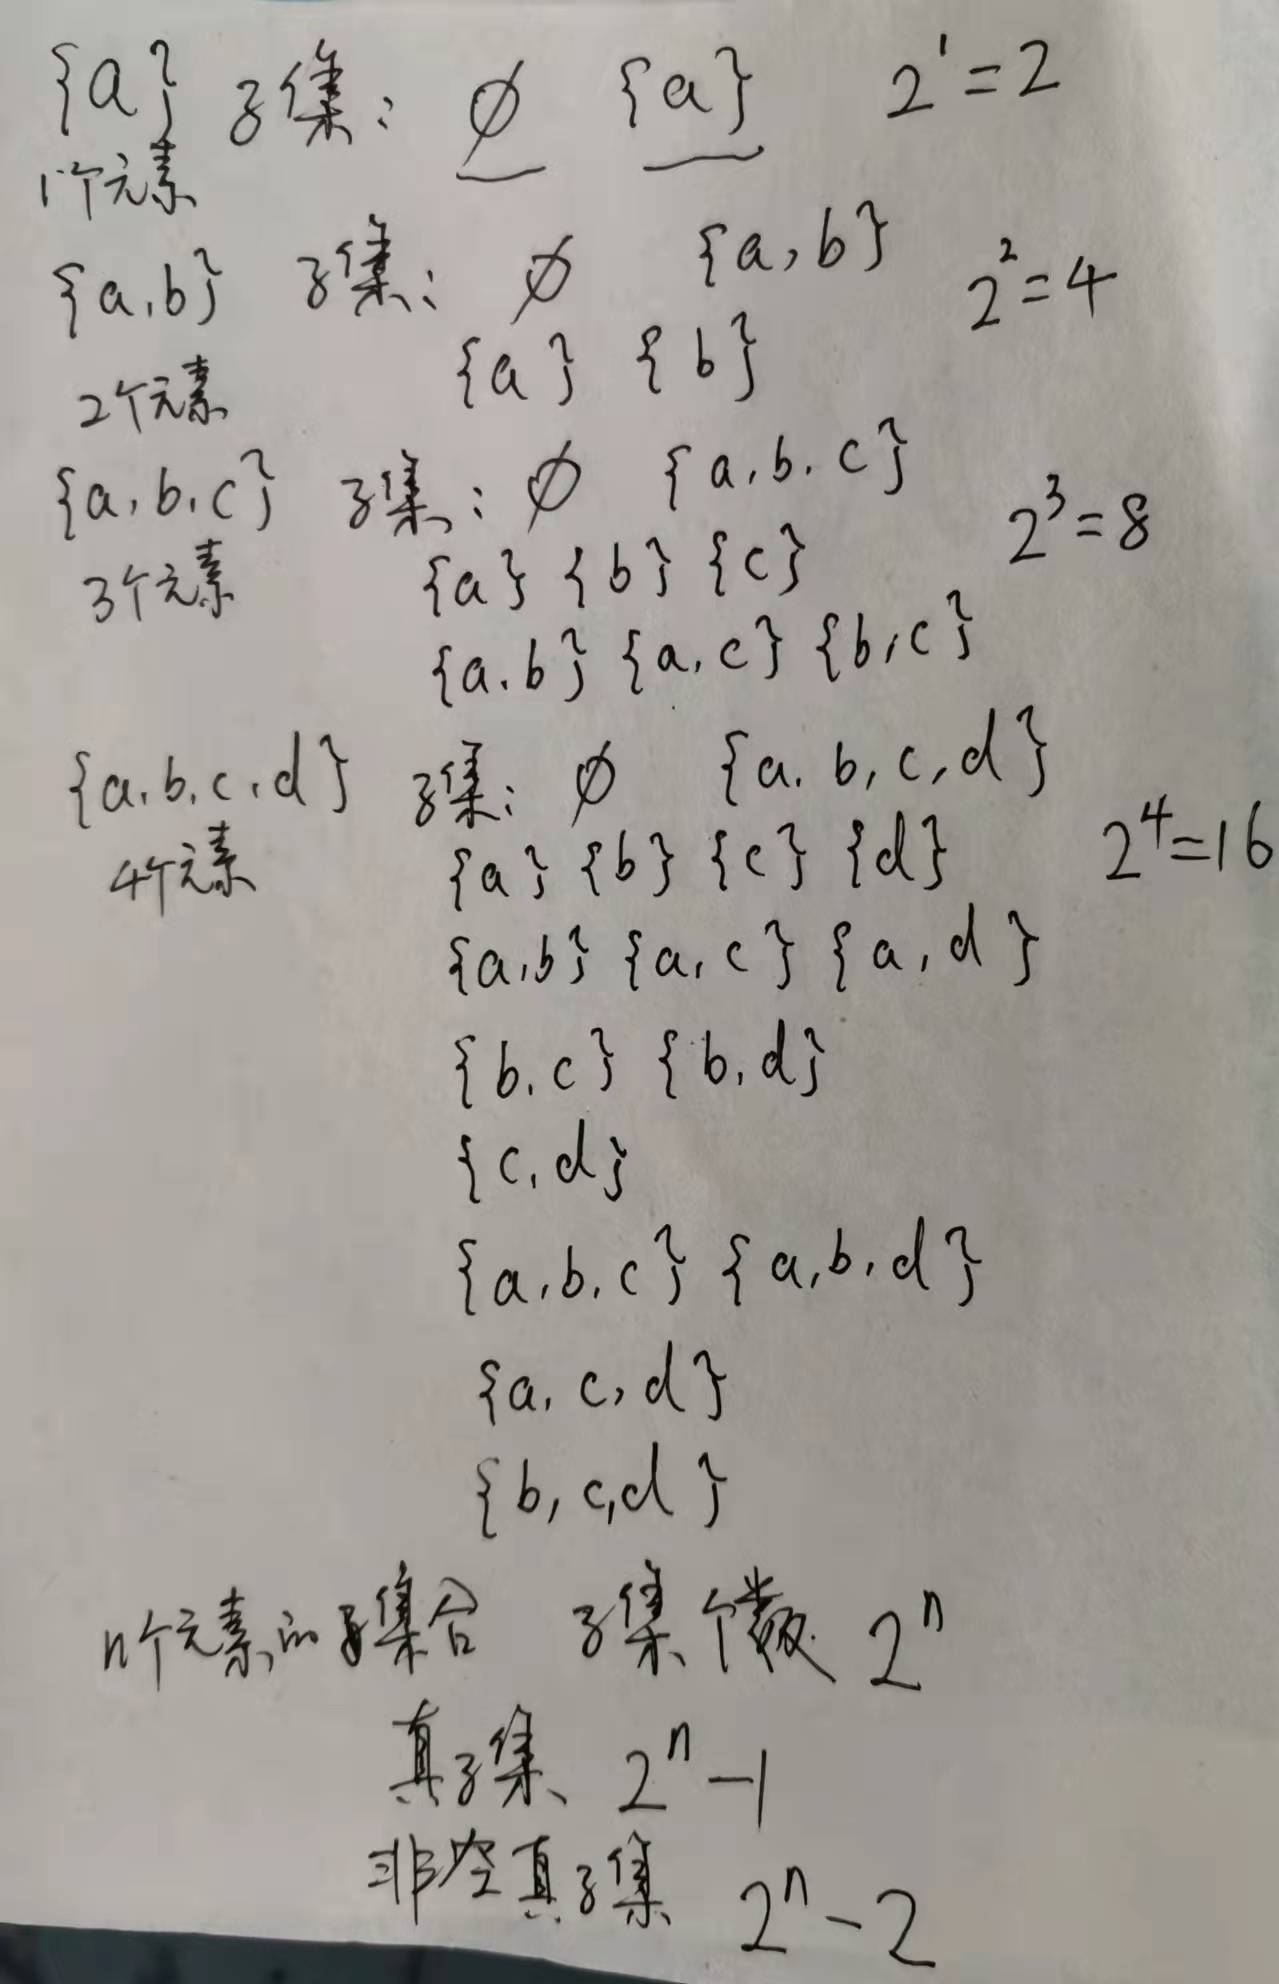 {a} 子集: ∅ {a} 2¹=2
1个元素
{a,b} 子集: ∅ {a,b} 2²=4
{a} {b}
2个元素
{a,b,c} 子集: ∅ {a,b,c} 2³=8
3个元素 {a} {b} {c}
{a,b} {a,c} {b,c}
{a,b,c,d} 子集: ∅ {a,b,c,d}
4个元素 {a} {b} {c} {d} 2⁴=16
{a,b} {a,c} {a,d}
{b,c} {b,d}
{c,d}
{a,b,c} {a,b,d}
{a,c,d}
{b,c,d}
n个元素的集合 子集个数 2ⁿ
真子集 2ⁿ-1
非空真子集 2ⁿ-2